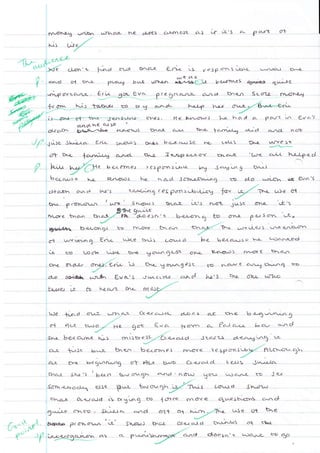 money upon what he does almost as if it's a part of
his life
The audience
We don't find out that Eric is responsible until the
end of the play but when it is it becomes quite
importance. Eric got Eva pregnant and then stole money
from his father to try and help her out. But Eric
is one of the sensible ones. He knows he had a part in Eva's
death and he also knows that all the family did and not
just Sheila. Eric shows this because he tells the rest
of the family and the Inspector that 'we all helped
kill her'. He becomes responsible by saying this
because he knows he had something to do with Eva's
death and he's taking responsibility for it. The use of
the pronoun 'we' shows that it's not just one it's
more than that. The guilt doesn't belong to one person it
belongs to more than that. The writers intention
of writing Eric like this could be because he wanted
to look like the youngest one knows more than
the older ones. Eric is the youngest to have anything to
do with Eva's suicide and he's the one who
takes it to heart the most.
We find out what Gerald does at the beginning
of Act two. He got Eva from a Palace bar and
she became his mistress. Gerald starts denying it
at first but then becomes more responsible. Although
at the beginning of Act two Gerald tells Sheila
that she's 'been through and now you want to see
somebody else put through it'. This could show
that Gerald is trying to force more questions and
guilt onto Sheila and off of him. The use of the
pronoun 'it' show that Gerald thinks of the
interrogation as a punishment and doesn't want to go
Good point